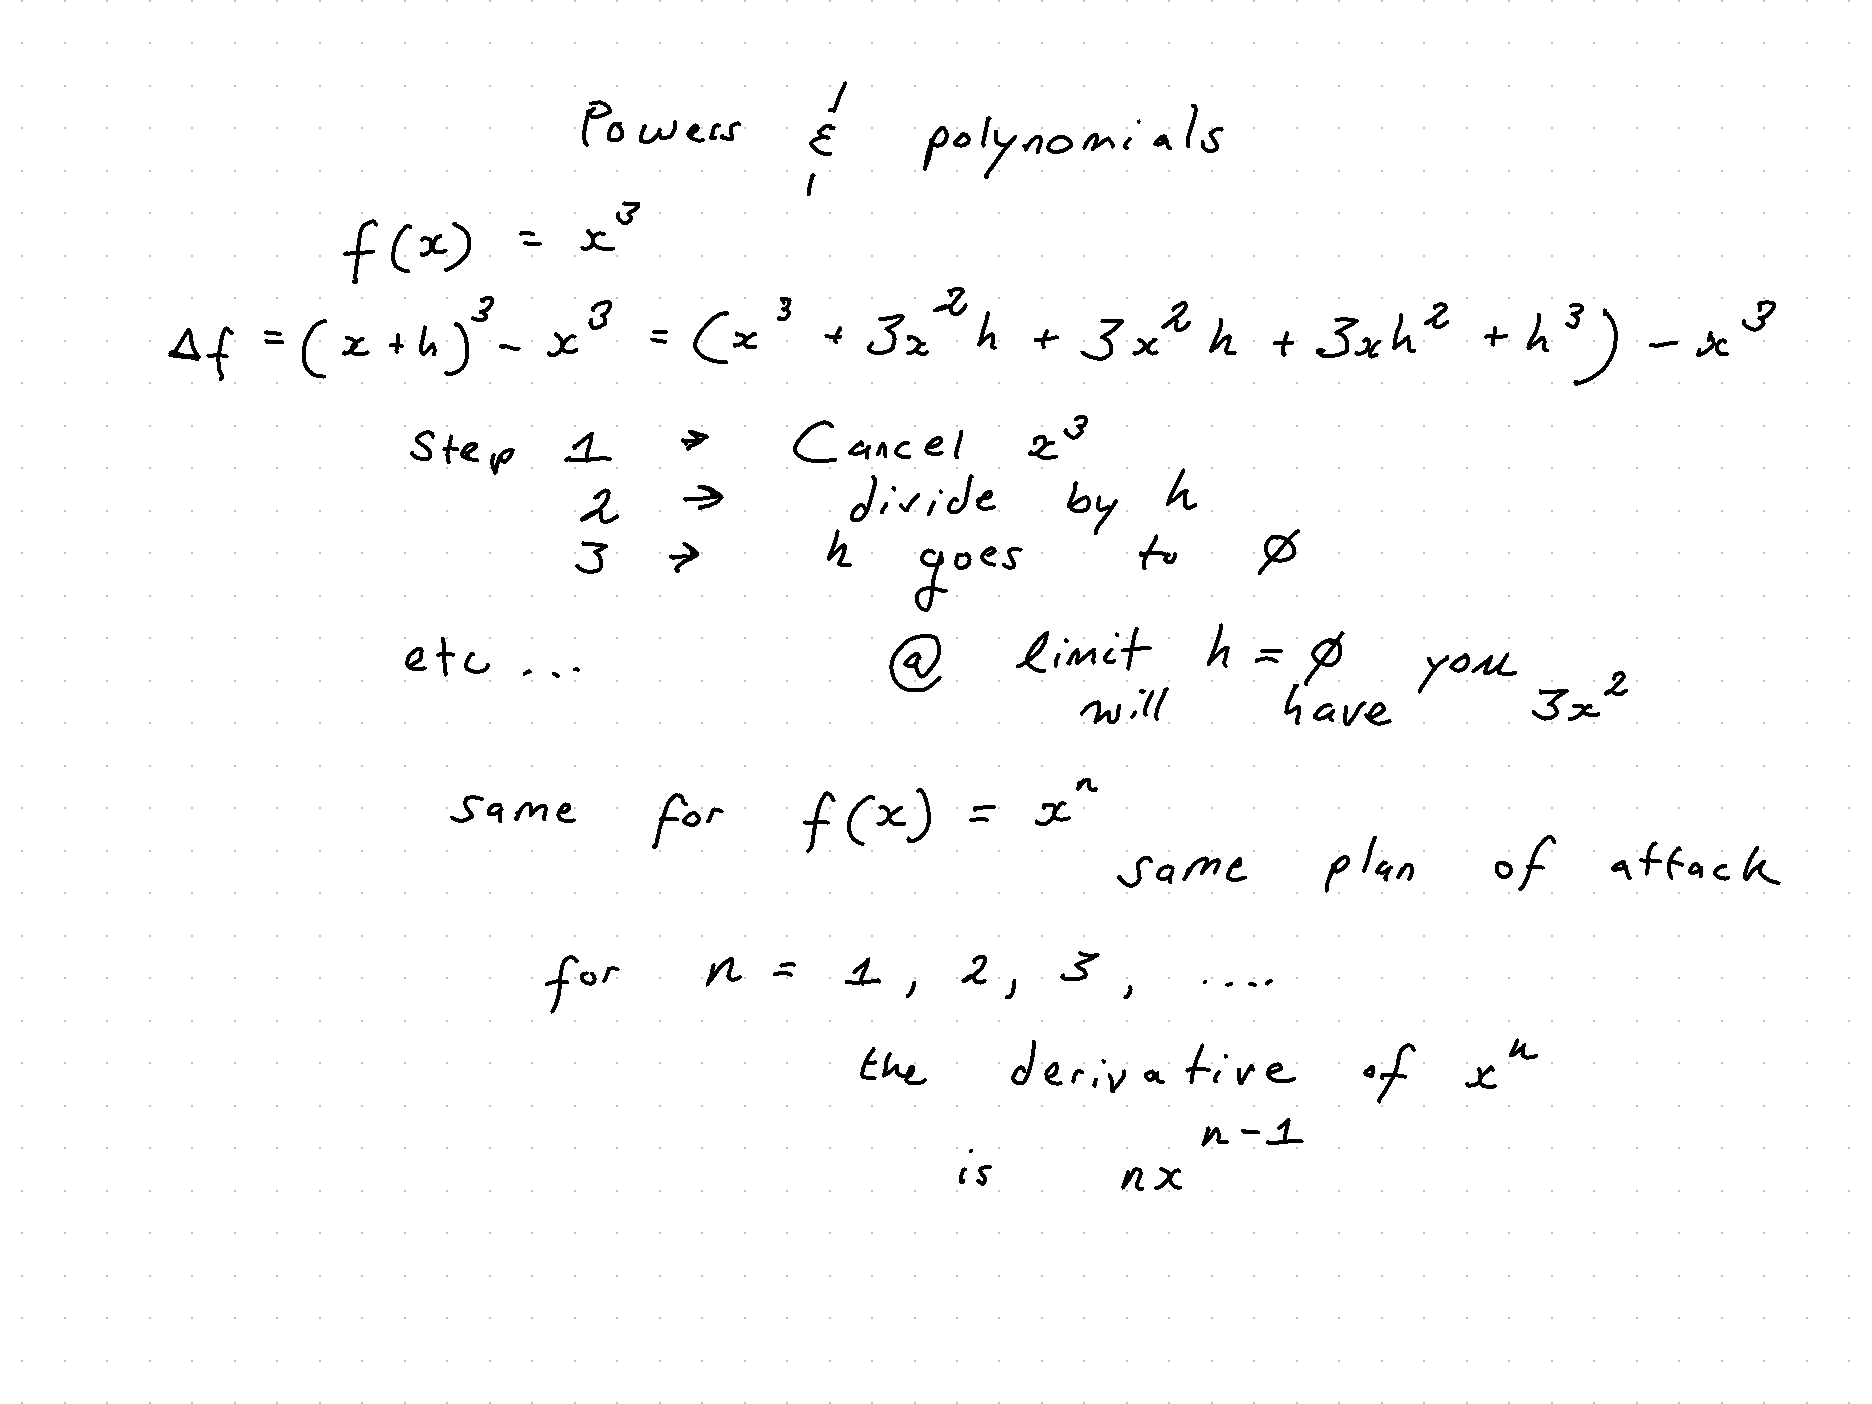 Powers & polynomials
f(x) = x³
Δf = (x+h)³ - x³ = (x³ + 3x²h + 3x²h + 3xh² + h³) - x³
Step 1 → Cancel x³
2 → divide by h
3 → h goes to ∅
etc ... @ limit h = ∅ you
will have 3x²
same for f(x) = xⁿ
same plan of attack
for n = 1, 2, 3, ....
the derivative of xⁿ
is nxⁿ⁻¹